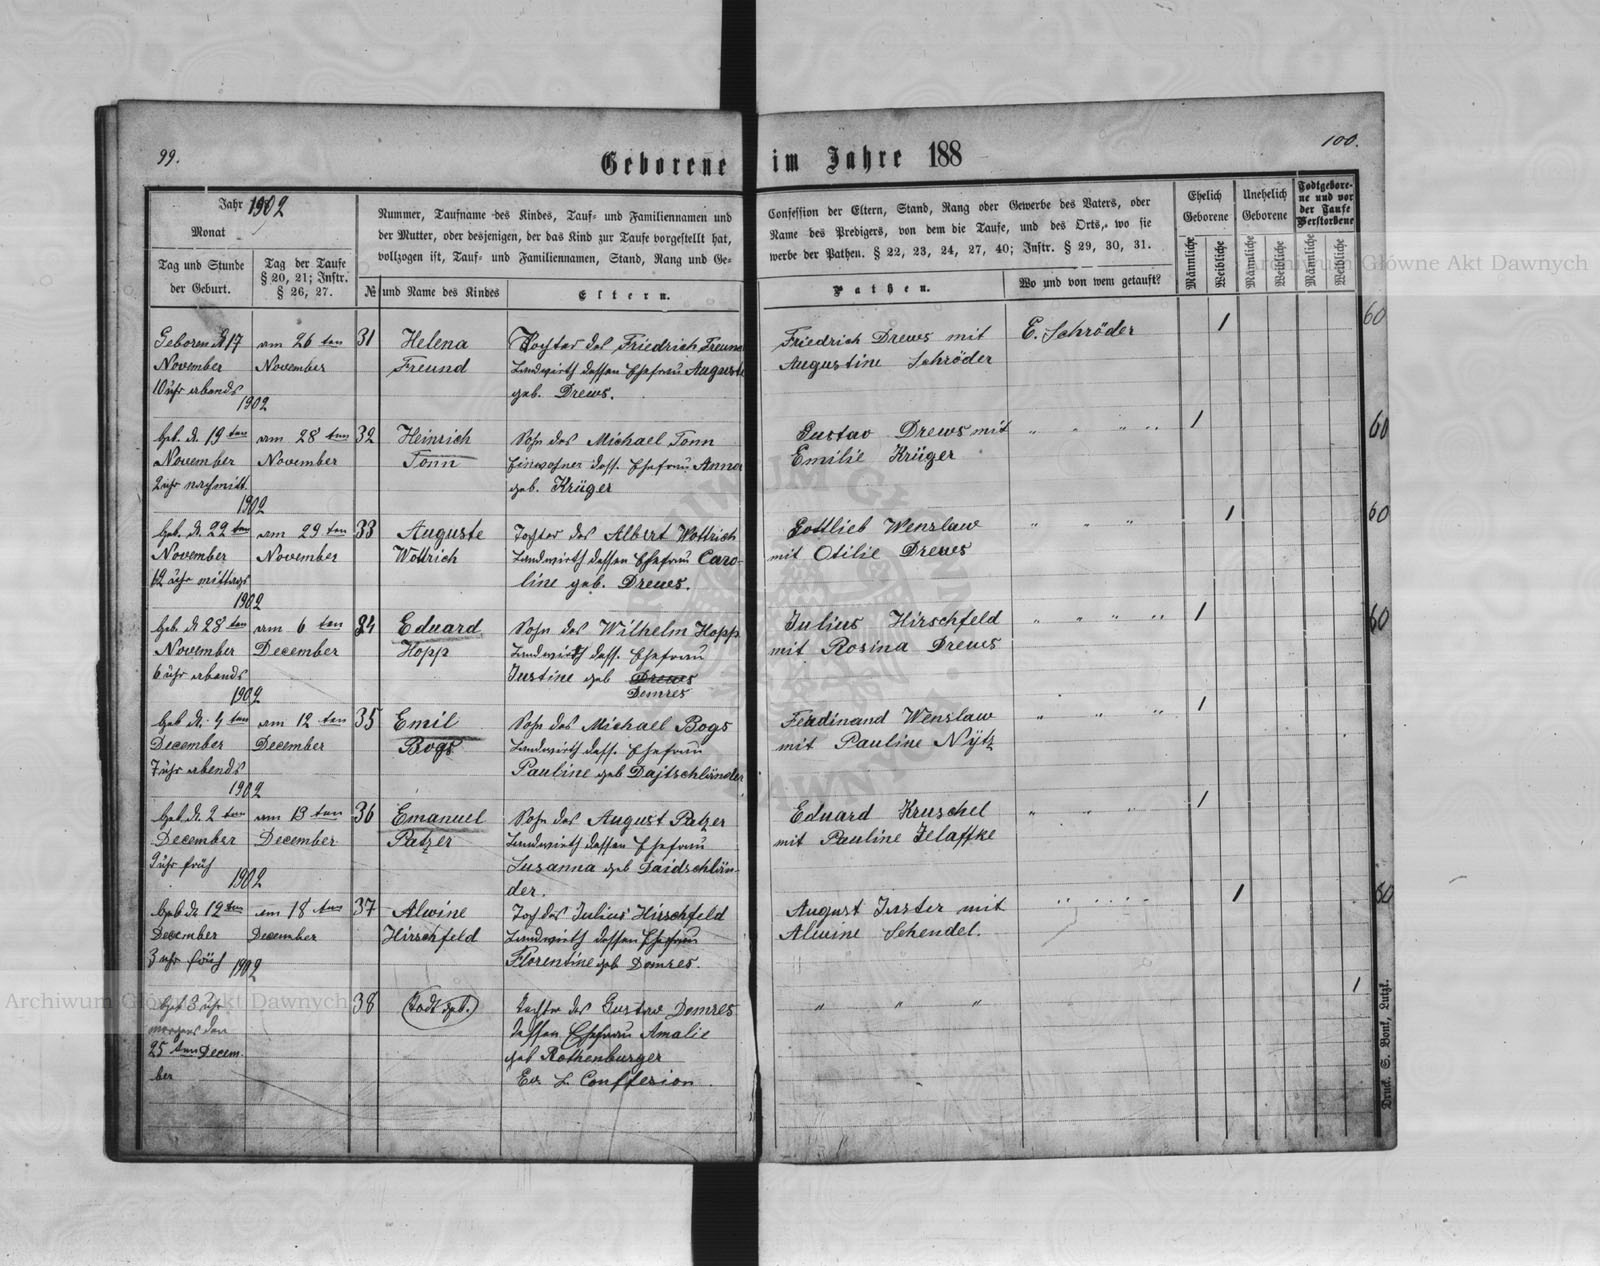 99.
100.
Geborene im Jahre 188
Jahr 1902
Monat
Tag und Stunde
der Geburt.
Tag der Taufe
§ 20, 21; Instr.
§ 26, 27.
Nummer, Taufname des Kindes, Tauf- und Familiennamen und
der Mutter, oder desjenigen, der das Kind zur Taufe vorgestellt hat,
vollzogen ist, Tauf- und Familiennamen, Stand, Rang und Ge-
№ und Name des Kindes
Eltern.
Confession der Eltern, Stand, Rang oder Gewerbe des Vaters, oder
Name des Predigers, von dem die Taufe, und des Orts, wo sie
werbe der Pathen. § 22, 23, 24, 27, 40; Instr. § 29, 30, 31.
Pathen.
Wo und von wem getauft?
Ehelich
Geborene
Unehelich
Geborene
Todtgebore-
ne und vor
der Taufe
Verstorbene
Männliche
Weibliche
Männliche
Weibliche
Männliche
Weibliche
Geboren d 17 am 26 ten 31 Helena Tochter des Friedrich Freund Friedrich Drews mit E. Schröder 1 60
November November Freund Landwirth dessen Ehefrau Auguste Augustine Schröder
10 uhr abends geb. Drews.
1902
Geb. d. 19 ten am 28 ten 32 Heinrich Sohn des Michael Tonn Gustav Drews mit " " " " 1 60
November November Tonn Einwohner dess. Ehefrau Anna Emilie Krüger
2 uhr nachmitt. geb. Krüger
1902
Geb. d. 22 ten am 29 ten 33 Auguste Tochter des Albert Wottrich Gottlieb Wenslaw " " " 1 60
November November Wottrich Landwirth dessen Ehefrau Caro- mit Otilie Drews
12 uhr mittags line geb. Drews.
1902
Geb. d. 28 ten am 6 ten 34 Eduard Sohn des Wilhelm Hopp Julius Hirschfeld " " " " 1 60
November December Hopp Landwirth dess. Ehefrau mit Rosina Drews
6 uhr abends Justine geb Drews
1902 Domres
Geb d. 4 ten am 12 ten 35 Emil Sohn des Michael Bogs Ferdinand Wenslaw " " " 1
December December Bogs Landwirth dess. Ehefrau mit Pauline Nytz
7 uhr abends Pauline geb Dajtschländer
1902
Geb d. 2 ten am 13 ten 36 Emanuel Sohn des August Patzer Eduard Kruschel " " " 1
December December Patzer Landwirth dessen Ehefrau mit Pauline Jelaffke
2 uhr früh Susanna geb Daidschlän-
1902 der.
Geb d. 12 ten am 18 ten 37 Alwine Toch des Julius Hirschfeld August Juster mit " " " " 1 60
December December Hirschfeld Landwirth dessen Ehefrau Alwine Schendel.
3 uhr früh Florentine geb Domres.
1902
Geb 3 uhr 38 Todt geb. Tochter des Gustav Domres " " " 1
morgens den dessen Ehefrau Amalie
25 ten Decem- geb Rothenburger
ber Ev. L. Conffesion.
Druck. S. Bonk, Lutzk.
Archiwum Główne Akt Dawnych
Archiwum Główne Akt Dawnych